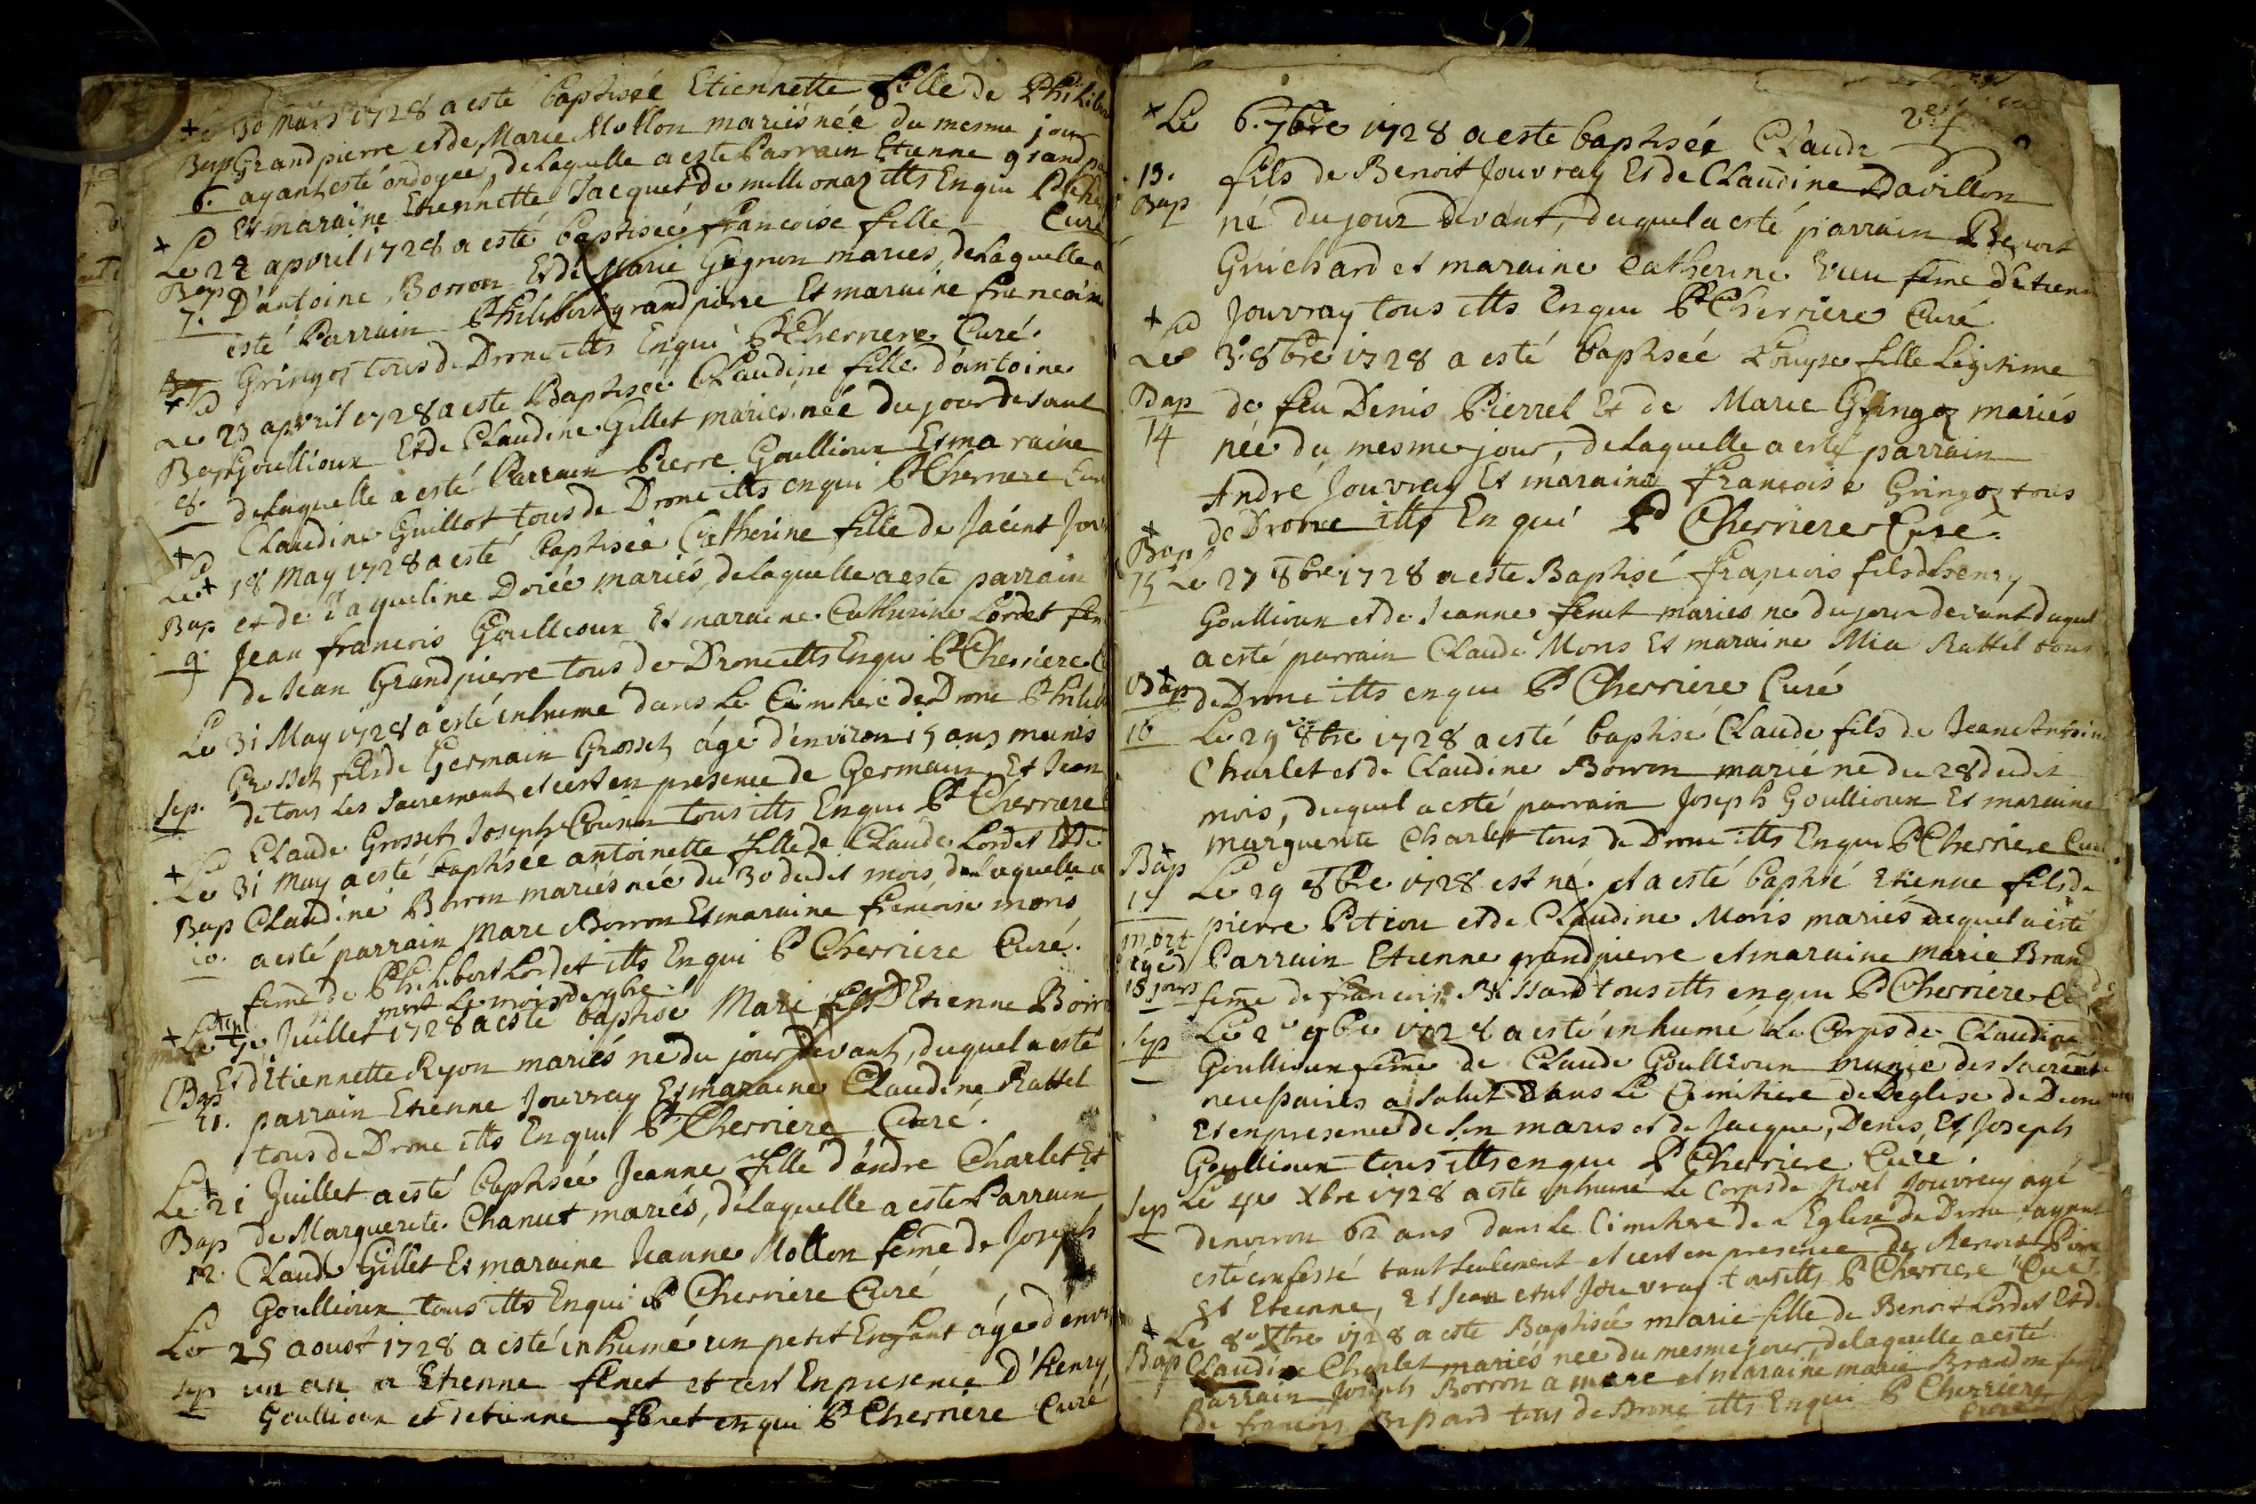 + 30 Mars 1728 a esté baptiseé Etiennette fille de Philib
Bap Grandpierre et de Marie Mollon mariés née du mesme jour
6. ayant esté ondoyee, delaquelle a esté Parrain Etienne grand
Et maraine Etiennette Jacquet de millionaz itts Enqui
+ Le 22 apvril 1728 a esté baptiseé francoise fille Curé
Bap D'antoine Borron Et de Marie Gagnon maries, delaquelle a
7. esté Parrain Philibert grandpierre Et maraine francoise
Gringoz tous de Drome itts Enqui Pd Cherriere Curé.
+ Le 23 apvril 1728 a esté Baptiseé Claudine fille d'antoine
Bap Goullioux Et de Claudine Gillet mariés neé du jour devant
8. delaquelle a esté Parrain Pierre Goullioux Et maraine
Claudine Guillot tous de Drome itts enqui Pd Cherriere Cur
+ Le 18 May 1728 a esté baptiseé Catherine fille de Jacint
Bap et de Jaqueline Doreé mariés, delaquelle a esté parrain
9. Jean francois Goullioux Et maraine Catherine Lordet
de Jean Grandpierre tous de Drome itts Enqui Pd Cherriere
Le 31 May 1728 a esté inhumé dans Le Cimitiere de Drome
Grosset fils de Germain Grosset, âgé d'environ 15 ans munis
Sep. de tous Les Sacrements et cest en presence de Germain, Et Jean
Claude Grosset, Joseph Cousin tous itts Enqui Pd Cherriere
+ Le 31 May a esté baptiseé antoinette fille de Claude Lordet Et de
Bap Claudine Borron mariés neé du 30 dudit mois, delaquelle a
10. a esté parrain Marc Borron Et maraine francoise mons
feme de Philibert Lordet itts Enqui Pd Cherriere Curé.
mort Le mois de 9bre
+ Le Juillet 1728 a esté baptisé Marc fils D'Etienne
Bap Et d'Etiennette Ryon mariés né du jour devant, duquel a esté
11. parrain Etienne Jouvray Et maraine Claudine Rattel
tous de Drome itts Enqui Pd Cherriere Curé.
+ Le 21 Juillet a esté baptiseé Jeanne fille d'andre Charlet Et
Bap de Marguerite Chanut mariés, delaquelle a esté Parrain
12 Claude Gillet Et maraine Jeanne Mollon feme de Joseph
Goullioux tous itts Enqui Pd Cherriere Curé
Le 25 aoust 1728 a esté inhumé un petit Enfant âgé d'envi
Sep un an a Etienne fenet et cest Enpresence d'Henry
Goullioux et detienne fenet enqui Pd Cherriere Curé
+ Le 6. 7bre 1728 a esté baptiseé Claude
13. fils de Benoit Jouvray Et de Claudine Davillon
Bap né du jour devant, duquel a esté parrain Benoit
Guichard et maraine Catherine feme d'Etienne
Jouvray tous itts Enqui Pd Cherriere Curé
+ Le 3e 8bre 1728 a esté baptiseé Louyse fille Légitime
Bap de feu Denis Pierrel Et de Marie Gringoz mariés
14 neé du mesme jour, delaquelle a esté parrain
André Jouvray Et maraine francoise Gringoz tous
+ de Drome itts Enqui Pd Cherriere Curé.
Bap
15 Le 27 8bre 1728 a esté Baptisé francois fils d'henry
Goullioux et de Jeanne fenet mariés né du jour devant duquel
a esté parrain Claude Mons Et maraine Mia Rattel tous
+ Bap de Drome itts enqui Pd Cherriere Curé
16 Le 29 8bre 1728 a esté baptisé Claude fils de Jean Antoine
Charlet et de Claudine Borron marié né du 28 dudit
mois, duquel a esté parrain Joseph Goullioux Et maraine
marguerite Charlet tous de Drome itts Enqui Pd Cherriere Curé
+ Bap Le 29 8bre 1728 est né et a esté baptisé Etienne fils de
17 pierre Petiou et de Claudine Monis mariés duquel a esté
mort Parrain Etienne grandpierre et maraine marie Brand
agé d 18 jours feme de francois Bissard tous itts enqui Pd Cherriere
Sep Le 2e 9bre 1728 a esté inhumé Le Corps de Claudine
Goullioux feme de Claude Goullioux munie des Sacrements
necessaires a salut dans Le Cimitiere de Leglise de Drome
Et en presence de Son maris et de Jacque, Denis, Et Joseph
Goullioux tous itts enqui Pd Cherriere Curé.
Sep Le 4e Xbre 1728 a esté inhumé Le Corps de Noel Jouvray agé
denviron 62 ans dans Le Cimitiere de L'Eglise de Drome, ayant
esté confessé tant seulement et cest en presence de Benoit
Et Etienne, Et Jean Jouvray tous itts Pd Cherriere Curé
+ Le 8e Xbre 1728 a esté Baptiseé marie fille de Benoit Lordet Et de
Bap Claudine Charlet mariés neé du mesme jour, delaquelle a esté
parrain Joseph Borron a marc et maraine marie Brandon feme
de francois Bissard tous de Drome itts Enqui Pd Cherriere
Curé